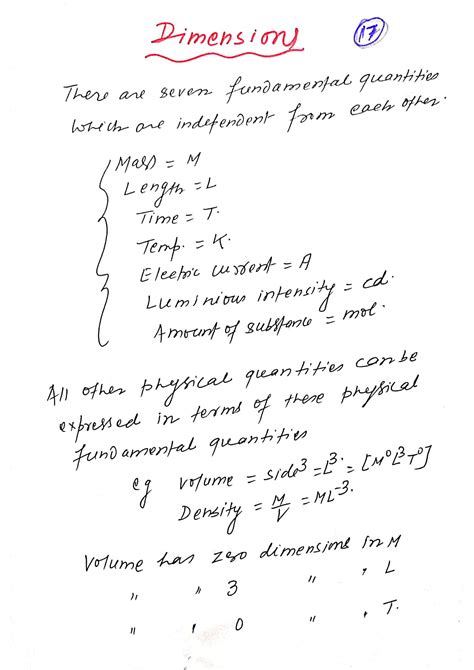 Dimensions
17
There are seven fundamental quantities
which are independent from each other.
Mass = M
Length = L
Time = T.
Temp. = K.
Electric current = A
Luminious intensity = cd.
Amount of substance = mol.
All other physical quantities can be
expressed in terms of these physical
fundamental quantities
eg volume = side³ = L³ = [M⁰L³T⁰]
Density = M/V = ML⁻³.
Volume has zero dimensions in M
" " 3 " , L
" , 0 " , T.